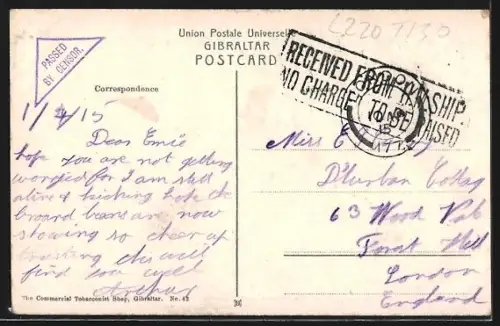 L220 T130
Union Postale Universelle
GIBRALTAR
POSTCARD
PASSED
BY CENSOR.
RECEIVED FROM SHIP
NO CHARGE TO BE RAISED
LONDON
15
Correspondence
1/4/15
Dear Emie
hope you are not getting
worried for I am still
alive & kicking hope the
broard beans are now
showing so cheer up
trusting this will
find you well
Arthur
Miss E
D'Urban Cottag
63 Wood Vale
Forest Hill
London
England
The Commercial Tobacconist Shop, Gibraltar. No. 42